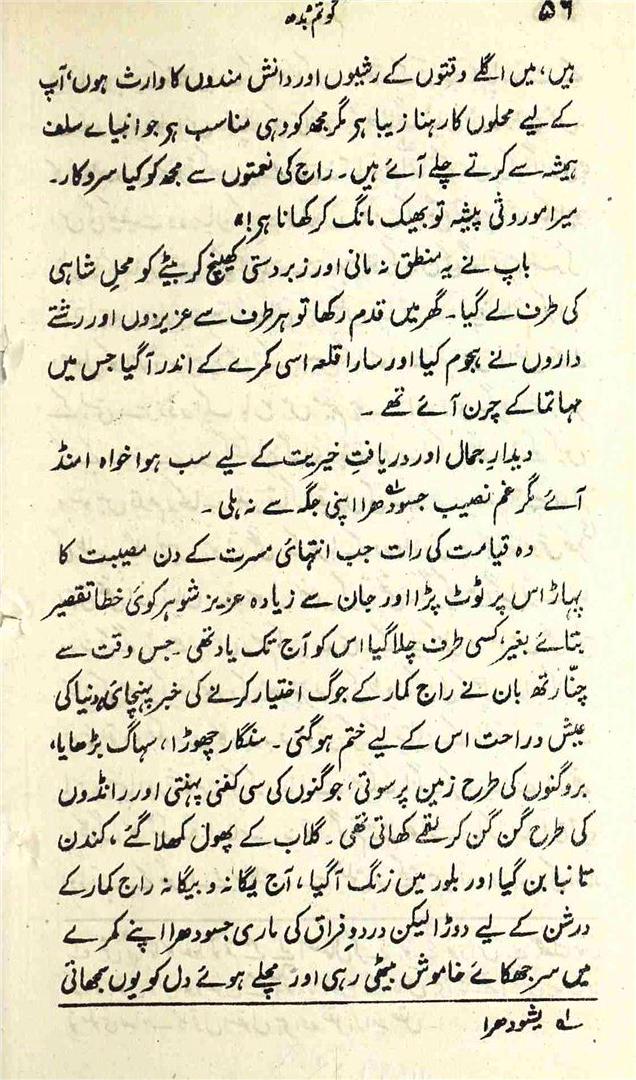 ۵۶ گوتم بدھ
ہیں، میں اگلے وقتوں کے رشیوں اور دانش مندوں کا وارث ہوں، آپ
کے لیے محلوں کا رہنا زیبا ہر مگر مجھ کو وہی مناسب ہر جو انبیاے سلف
ہمیشہ سے کرتے چلے آئے ہیں۔ راج کی نعمتوں سے مجھ کو کیا سروکار۔
میرا موروثی پیشہ تو بھیک مانگ کر کھانا ہر!"
باپ نے یہ منطق نہ مانی اور زبردستی کھینچ کر بیٹے کو محلِ شاہی
کی طرف لے گیا۔ گھر میں قدم رکھا تو ہر طرف سے عزیزوں اور رشتے
داروں نے ہجوم کیا اور سارا قلعہ اسی کمرے کے اندر آ گیا جس میں
مہاتما کے چرن آئے تھے۔
دیدارِ جمال اور دریافتِ خیریت کے لیے سب ہوا خواہ امنڈ
آئے مگر غم نصیب جسودھرا اپنی جگہ سے نہ ہلی۔
وہ قیامت کی رات جب انتہائی مسرت کے دن مصیبت کا
پہاڑ اس پر ٹوٹ پڑا اور جان سے زیادہ عزیز شوہر کوئی خطا تقصیر
بتائے بغیر کسی طرف چلا گیا اس کو آج تک یاد تھی۔ جس وقت سے
چنّا رتھ بان نے راج کمار کے جوگ اختیار کرنے کی خبر پہنچائی، دنیا کی
عیش و راحت اس کے لیے ختم ہو گئی۔ سنگار چھوڑا، سہاگ بڑھایا،
بروگنوں کی طرح زمین پر سوتی، جوگنوں کی سی کفنی پہنتی اور رانڈوں
کی طرح گن گن کر لقمے کھاتی تھی۔ گلاب کے پھول کمھلا گئے، کندن
تانبا بن گیا اور بلور میں زنگ آ گیا، آج یگانہ و بیگانہ راج کمار کے
درشن کے لیے دوڑا لیکن دردِ فراق کی ماری جسودھرا اپنے کمرے
میں سر جھکائے خاموش بیٹھی رہی اور مچلے ہوئے دل کو یوں سمجھاتی
لہ یشودھرا